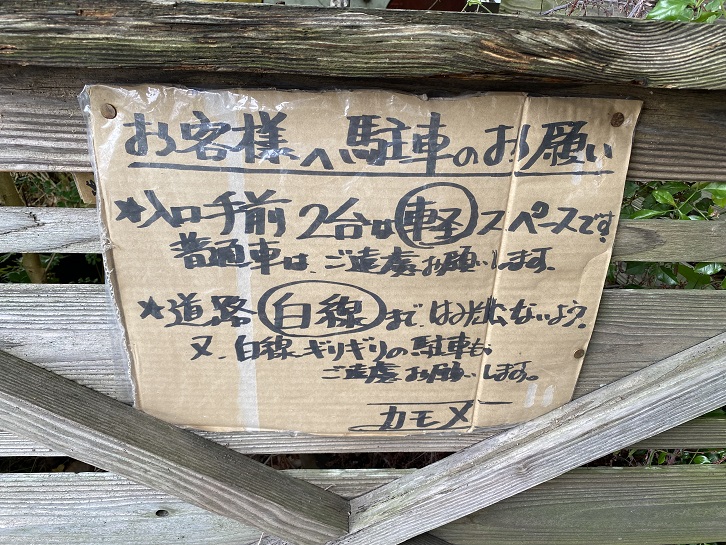 お客様へ駐車のお願い
★入口手前2台は軽スペースです。
普通車は、ご遠慮お願いします。
★道路白線まで、はみださないよう。
又、白線ギリギリの駐車も
ご遠慮お願いします。
カモメ